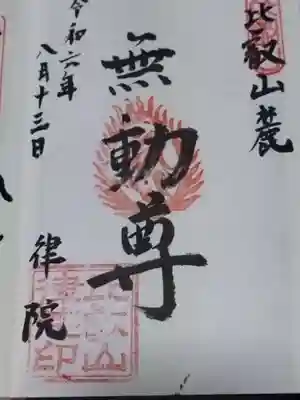 比叡山麓
無動尊
令和六年
八月十三日
律院